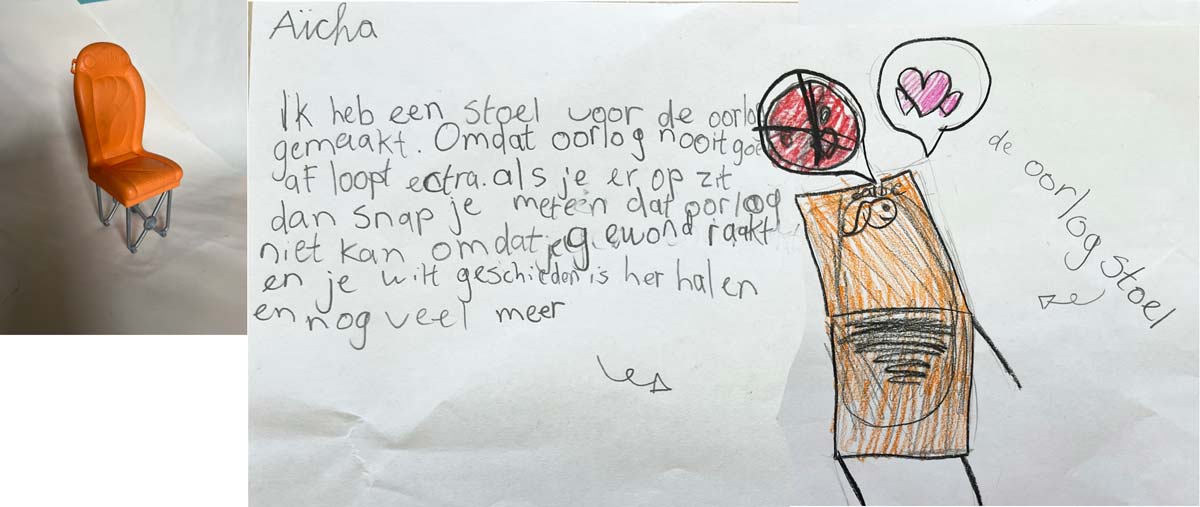 Aïcha
Ik heb een stoel voor de oorlo
gemaakt. Omdat oorlog nooit goe
af loopt ectra. als je er op zit
dan snap je meteen dat oorlog
niet kan omdat je gewond raakt
en je wilt geschiedenis her halen
en nog veel meer
de oorlog stoel